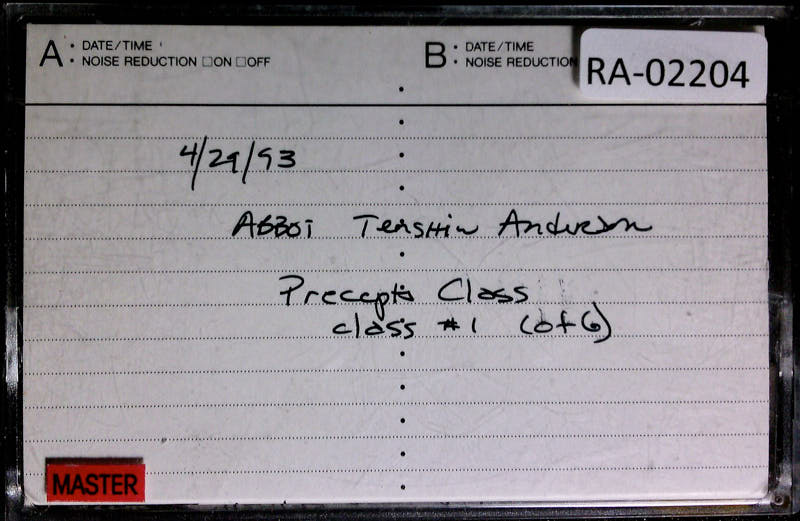 A • DATE/TIME
• NOISE REDUCTION □ON □OFF
B • DATE/TIME
• NOISE REDUCTION
RA-02204
4/29/93
Abbot Tenshin Anderson
Precepts Class
class #1 (of 6)
MASTER